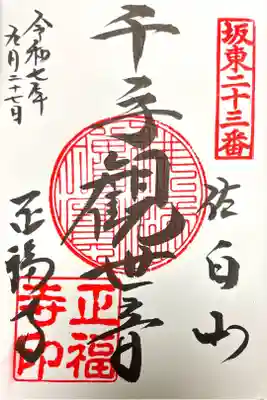 坂東二十三番
佐白山
千手観世音
令和七年
五月二十七日
正福寺
正福
寺印